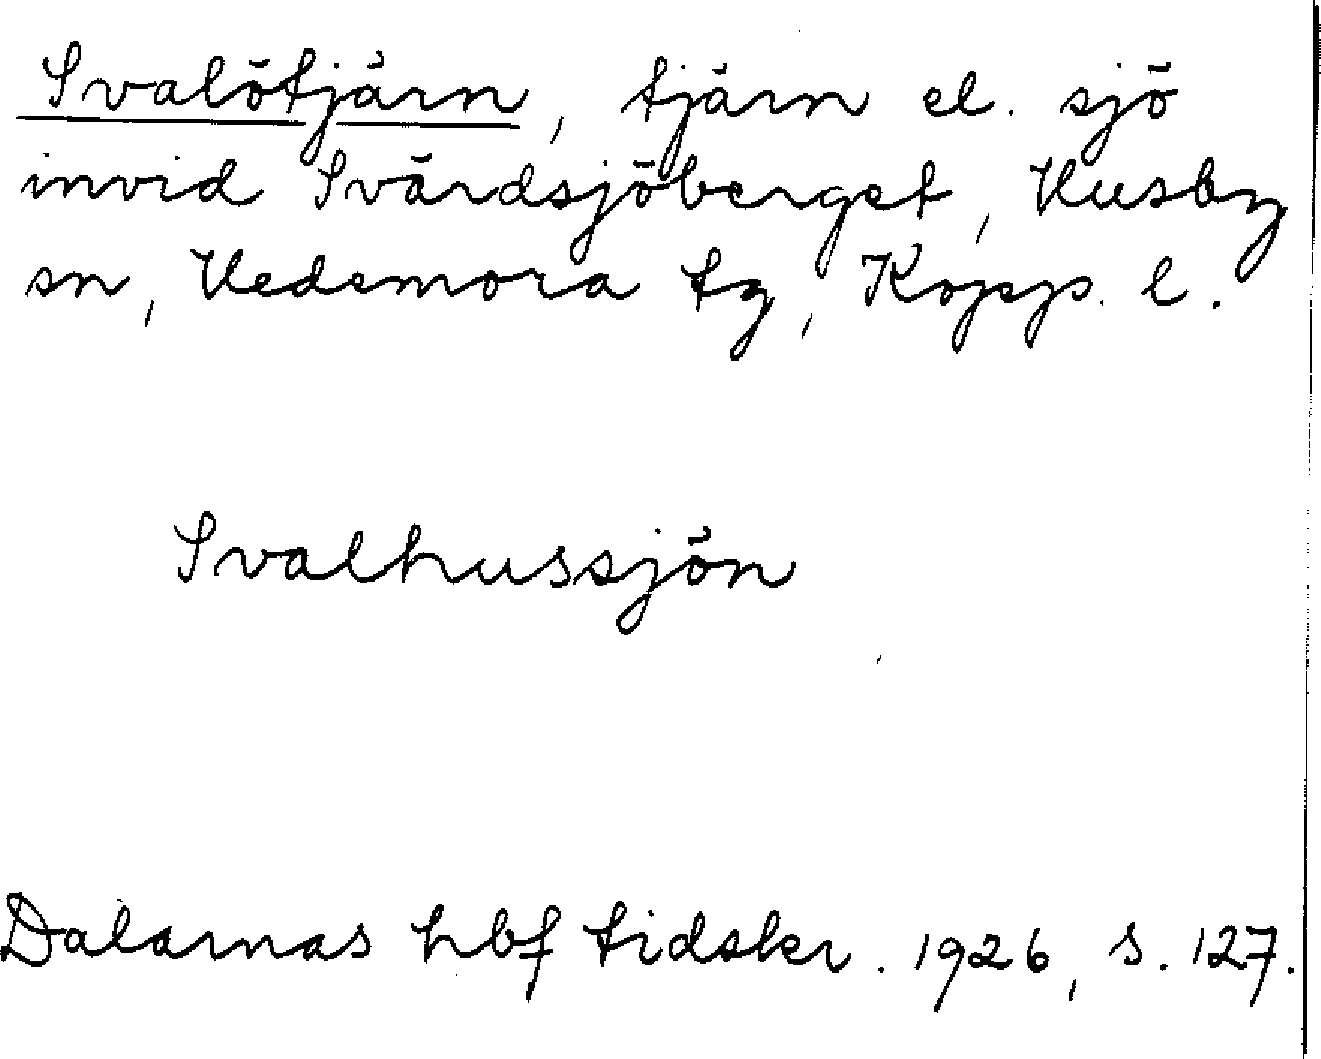 Svalötjärn, tjärn el. sjö
invid Svärdsjöberget, Husby
sn, Hedemora tg, Kopp. l.
Svalhussjön
Dalarnas hbf tidskr. 1926, s. 127.